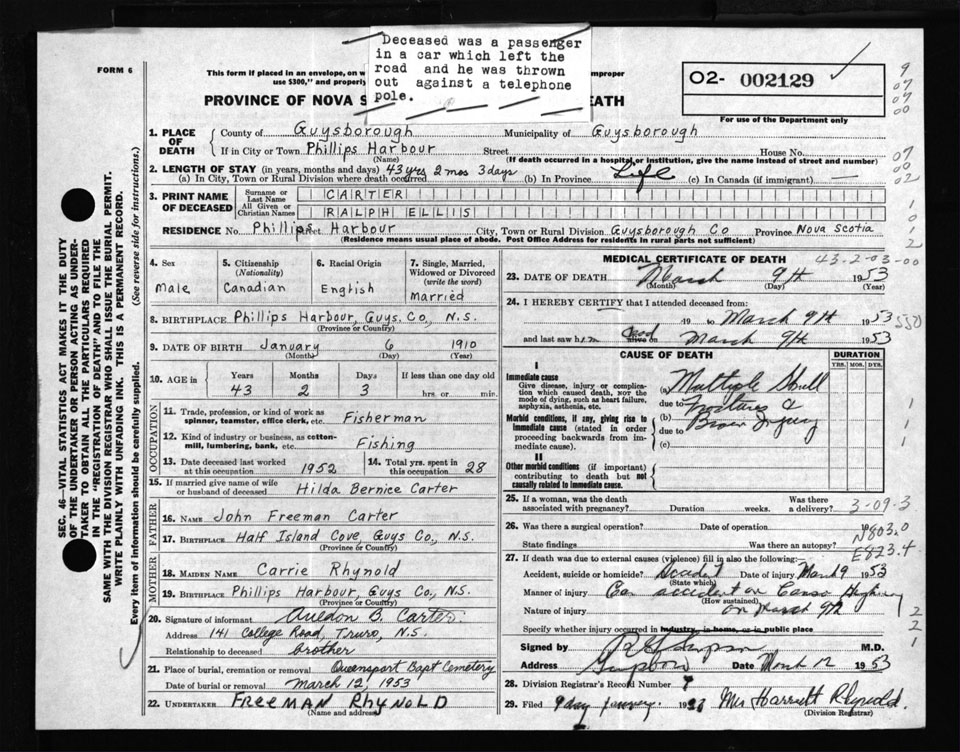 Deceased was a passenger
in a car which left the
road and he was thrown
out against a telephone
pole.
FORM 6
This form if placed in an envelope, on w improper
use $300," and properly
PROVINCE OF NOVA S EATH
O2- 002129
For use of the Department only
1. PLACE OF DEATH
County of Guysborough Municipality of Guysborough
If in City or Town Phillips Harbour Street House No.
(Name) (If death occurred in a hospital or institution, give the name instead of street and number)
2. LENGTH OF STAY (in years, months and days) 43 yrs 2 mos 3 days
(a) In City, Town or Rural Division where death occurred (b) In Province Life (c) In Canada (if immigrant)
3. PRINT NAME OF DECEASED
Surname or Last Name CARTER
All Given or Christian Names RALPH ELLIS
RESIDENCE No. Phillips Street Harbour City, Town or Rural Division Guysborough Co Province Nova Scotia
(Residence means usual place of abode. Post Office Address for residents in rural parts not sufficient)
4. Sex
Male
5. Citizenship
(Nationality)
Canadian
6. Racial Origin
English
7. Single, Married,
Widowed or Divorced
(write the word)
Married
8. BIRTHPLACE Phillips Harbour, Guys. Co., N.S.
(Province or Country)
9. DATE OF BIRTH January 6 1910
(Month) (Day) (Year)
10. AGE in
Years Months Days If less than one day old
43 2 3 hrs. or min.
OCCUPATION
11. Trade, profession, or kind of work as
spinner, teamster, office clerk, etc. Fisherman
12. Kind of industry or business, as cotton-
mill, lumbering, bank, etc. Fishing
13. Date deceased last worked
at this occupation 1952
14. Total yrs. spent in
this occupation 28
15. If married give name of wife
or husband of deceased Hilda Bernice Carter
FATHER
16. NAME John Freeman Carter
17. BIRTHPLACE Half Island Cove, Guys Co., N.S.
(Province or Country)
MOTHER
18. MAIDEN NAME Carrie Rhynold
19. BIRTHPLACE Phillips Harbour, Guys Co, N.S.
(Province or Country)
20. Signature of informant B. Carter
Address 141 College Road, Truro, N.S.
Relationship to deceased brother
21. Place of burial, cremation or removal Queensport Bapt Cemetery
Date of burial or removal March 12, 1953
22. UNDERTAKER FREEMAN RHYNOLD
(Name and address)
MEDICAL CERTIFICATE OF DEATH
43-2-03-00
23. DATE OF DEATH March 9th 1953
(Month) (Day) (Year)
24. I HEREBY CERTIFY that I attended deceased from:
19 to March 9th 1953
and last saw him dead alive on March 9th 1953
CAUSE OF DEATH
DURATION
YRS. MOS. DYS.
I
Immediate cause
Give disease, injury or complica-
tion which caused death, not the
mode of dying, such as heart failure,
asphyxia, asthenia, etc.
(a) Multiple Skull
due to Fractures &
Morbid conditions, if any, giving rise to
immediate cause (stated in order
proceeding backwards from im-
mediate cause).
(b)
due to Brain Injury
(c)
II
Other morbid conditions (if important)
contributing to death but not
causally related to immediate cause.
25. If a woman, was the death
associated with pregnancy? Duration weeks. Was there
a delivery? 3-09-3
26. Was there a surgical operation? Date of operation N803.0
State findings Was there an autopsy? E823.4
27. If death was due to external causes (violence) fill in also the following:
Accident, suicide or homicide? Accident Date of injury March 9 1953
(State which)
Manner of injury Car accident on Canso Highway
(How sustained)
Nature of injury on March 9th
Specify whether injury occurred in industry, in home, or in public place
Signed by M.D.
Address Date March 12 1953
28. Division Registrar's Record Number 4
29. Filed 19 Mrs Harriett Rhynold
(Division Registrar)
SEC. 46—VITAL STATISTICS ACT MAKES IT THE DUTY
OF THE UNDERTAKER OR PERSON ACTING AS UNDER-
TAKER TO OBTAIN ALL THE PARTICULARS REQUIRED
IN THE "REGISTRATION OF DEATH" AND TO FILE THE
SAME WITH THE DIVISION REGISTRAR WHO SHALL ISSUE THE BURIAL PERMIT.
WRITE PLAINLY WITH UNFADING INK. THIS IS A PERMANENT RECORD.
Every item of information should be carefully supplied. (See reverse side for instructions.)